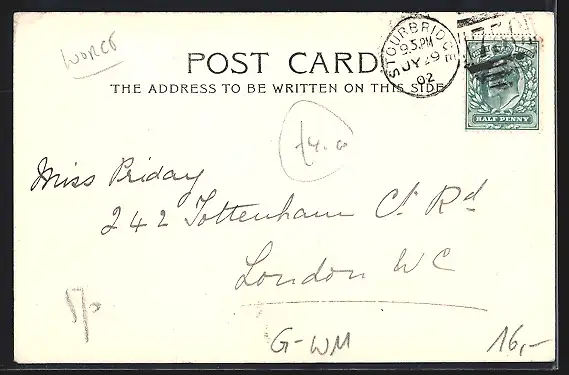 Worcs
POST CARD
THE ADDRESS TO BE WRITTEN ON THIS SIDE
STOURBRIDGE
9.5 PM
JY 29
02
HALF PENNY
Miss Priday
242 Tottenham Ct. Rd
London WC
G-WM
16,-